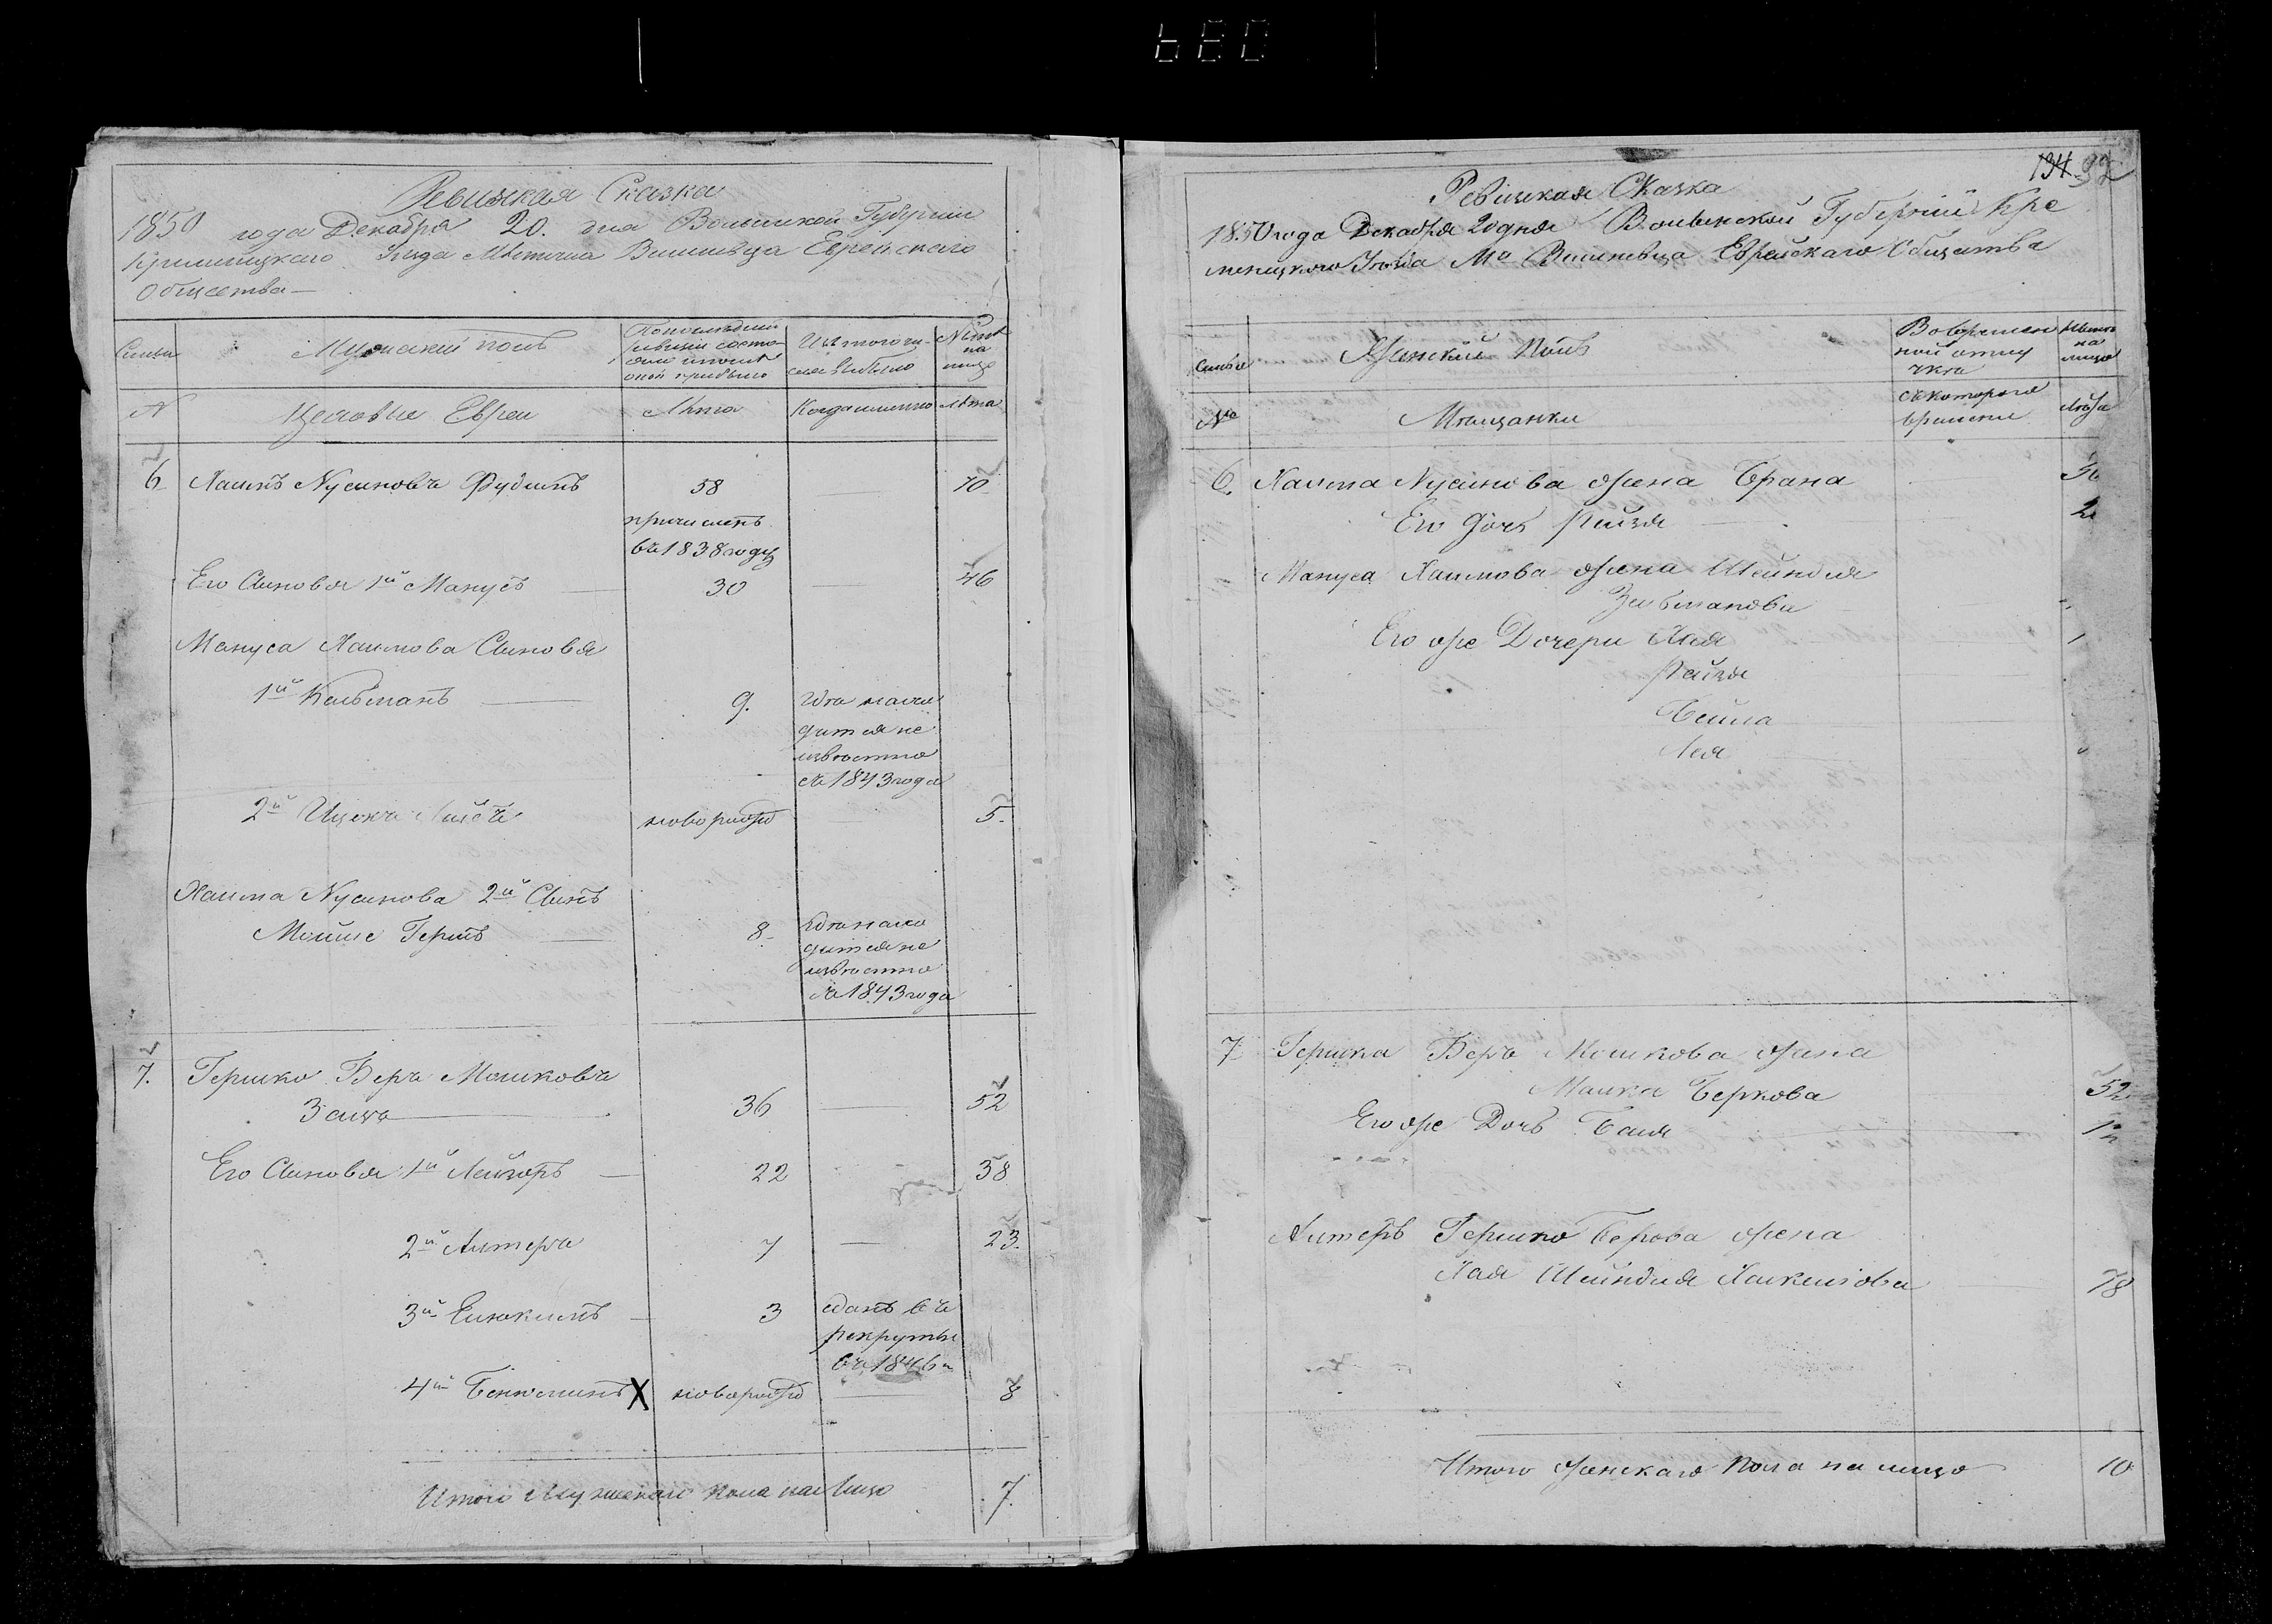 Ревизская Сказка
1850 года Декабря 20. дня Волынской Губернии
Кременецкого Уезда Местечка Вишневца Еврейского
Общества
Семьи
Мужеский полъ
По последней
ревизии состо
яло и после
оной прибыло
Изъ того чи-
сла выбыло
Ныне
на
лицо
N
Цеховые Евреи
Лета
Когда именно
Лета
6
Хаимъ Нусиновъ Фудимъ
58
70
причисленъ
въ 1838 году
Его Сыновья 1й Манусъ
30
46
Мануса Хаимова Сыновья
1й Кельманъ
9.
Где нахо
дится не
известно
съ 1843 года
2й Ицекъ
новорожд
5.
Хаима Нусинова 2й Сынъ
Мойше Гершъ
8.
Где нахо
дится не
известно
съ 1843 года
7.
Гершко Беръ Мошковъ
Зайцъ
36
52
Его Сыновья 1й Лейзоръ
22
38
2й Алтеръ
7
23.
3й Елюкимъ
3
сданъ въ
рекруты
въ 1846 г
4й Бенюминъ X
новорожд
8
Итого Мужескаго пола на Лицо
7.
134 37
Ревизская Сказка
1850 года Декабря 20 дня Волынской Губернии Кре
менецкого Уезда Ма Вишневца Еврейскаго Общества
Семья
Женский Полъ
Во времен
ной отлу
чке
Ныне
на
лицо
No
Мещанки
Съ котораго
времени
Лета
6.
Хаима Нусинова жена Брана
Его дочь Рейзя
Мануса Хаимова жена Шейндля
Зельманова
Его же Дочери Хая
Рейзя
Бейла
Лея
7.
Гершка Беръ Мошкова жена
Малка Беркова
52
Его же Дочь Бася
Алтеръ Гершко Берова жена
Хая Шейндля
18
Итого женскаго пола на лицо
10